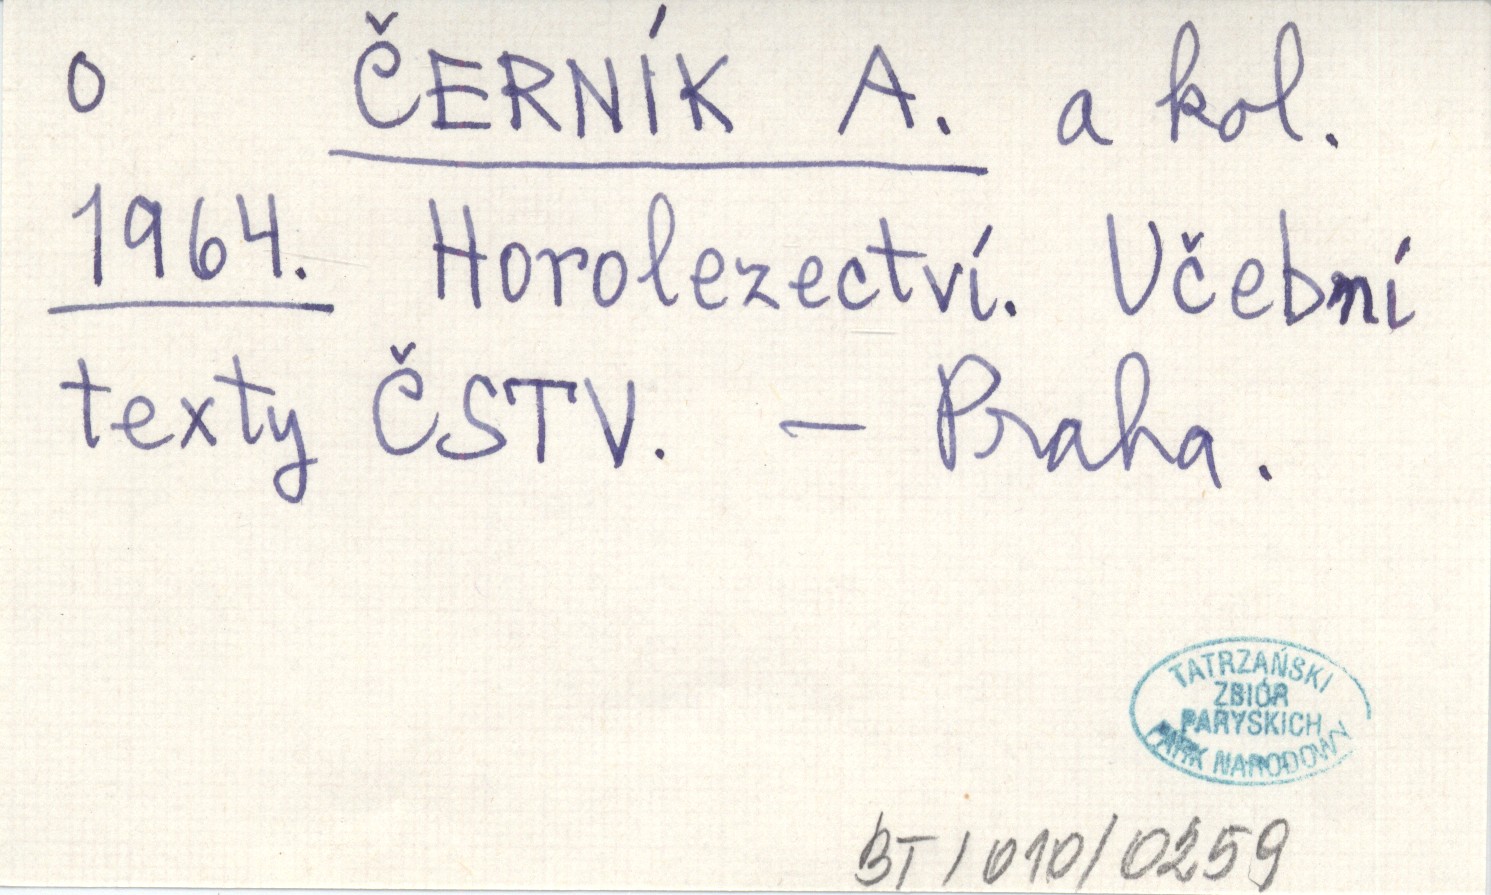 o ČERNÍK A. a kol.
1964. Horolezectví. Učební
texty ČSTV. — Praha.
TATRZAŃSKI
ZBIÓR
PARYSKICH
PARK NARODOWY
BT/010/0259